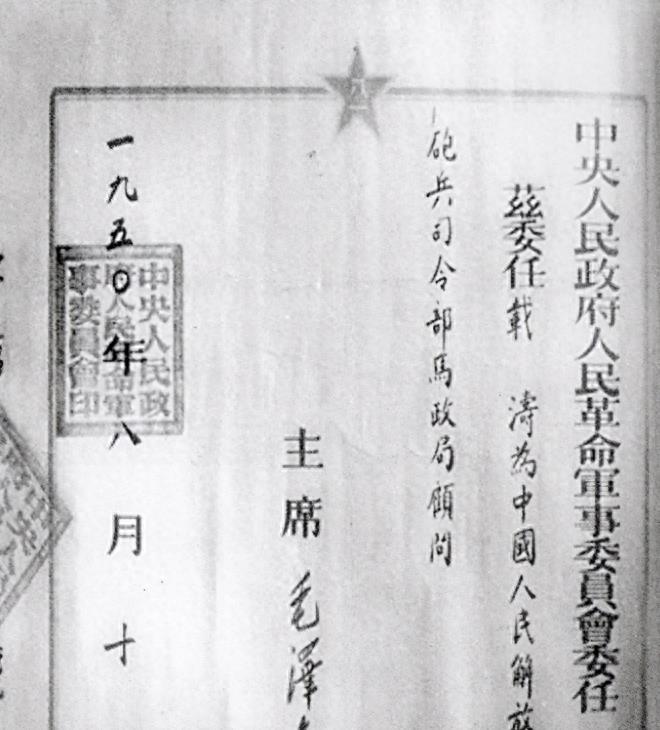 中央人民政府人民革命軍事委員會委任
茲委任載 濤為中國人民解放
砲兵司令部馬政局顧問
主席 毛澤
一九五〇年八月十
中央人民政
府人民革命軍
事委員會印
八一